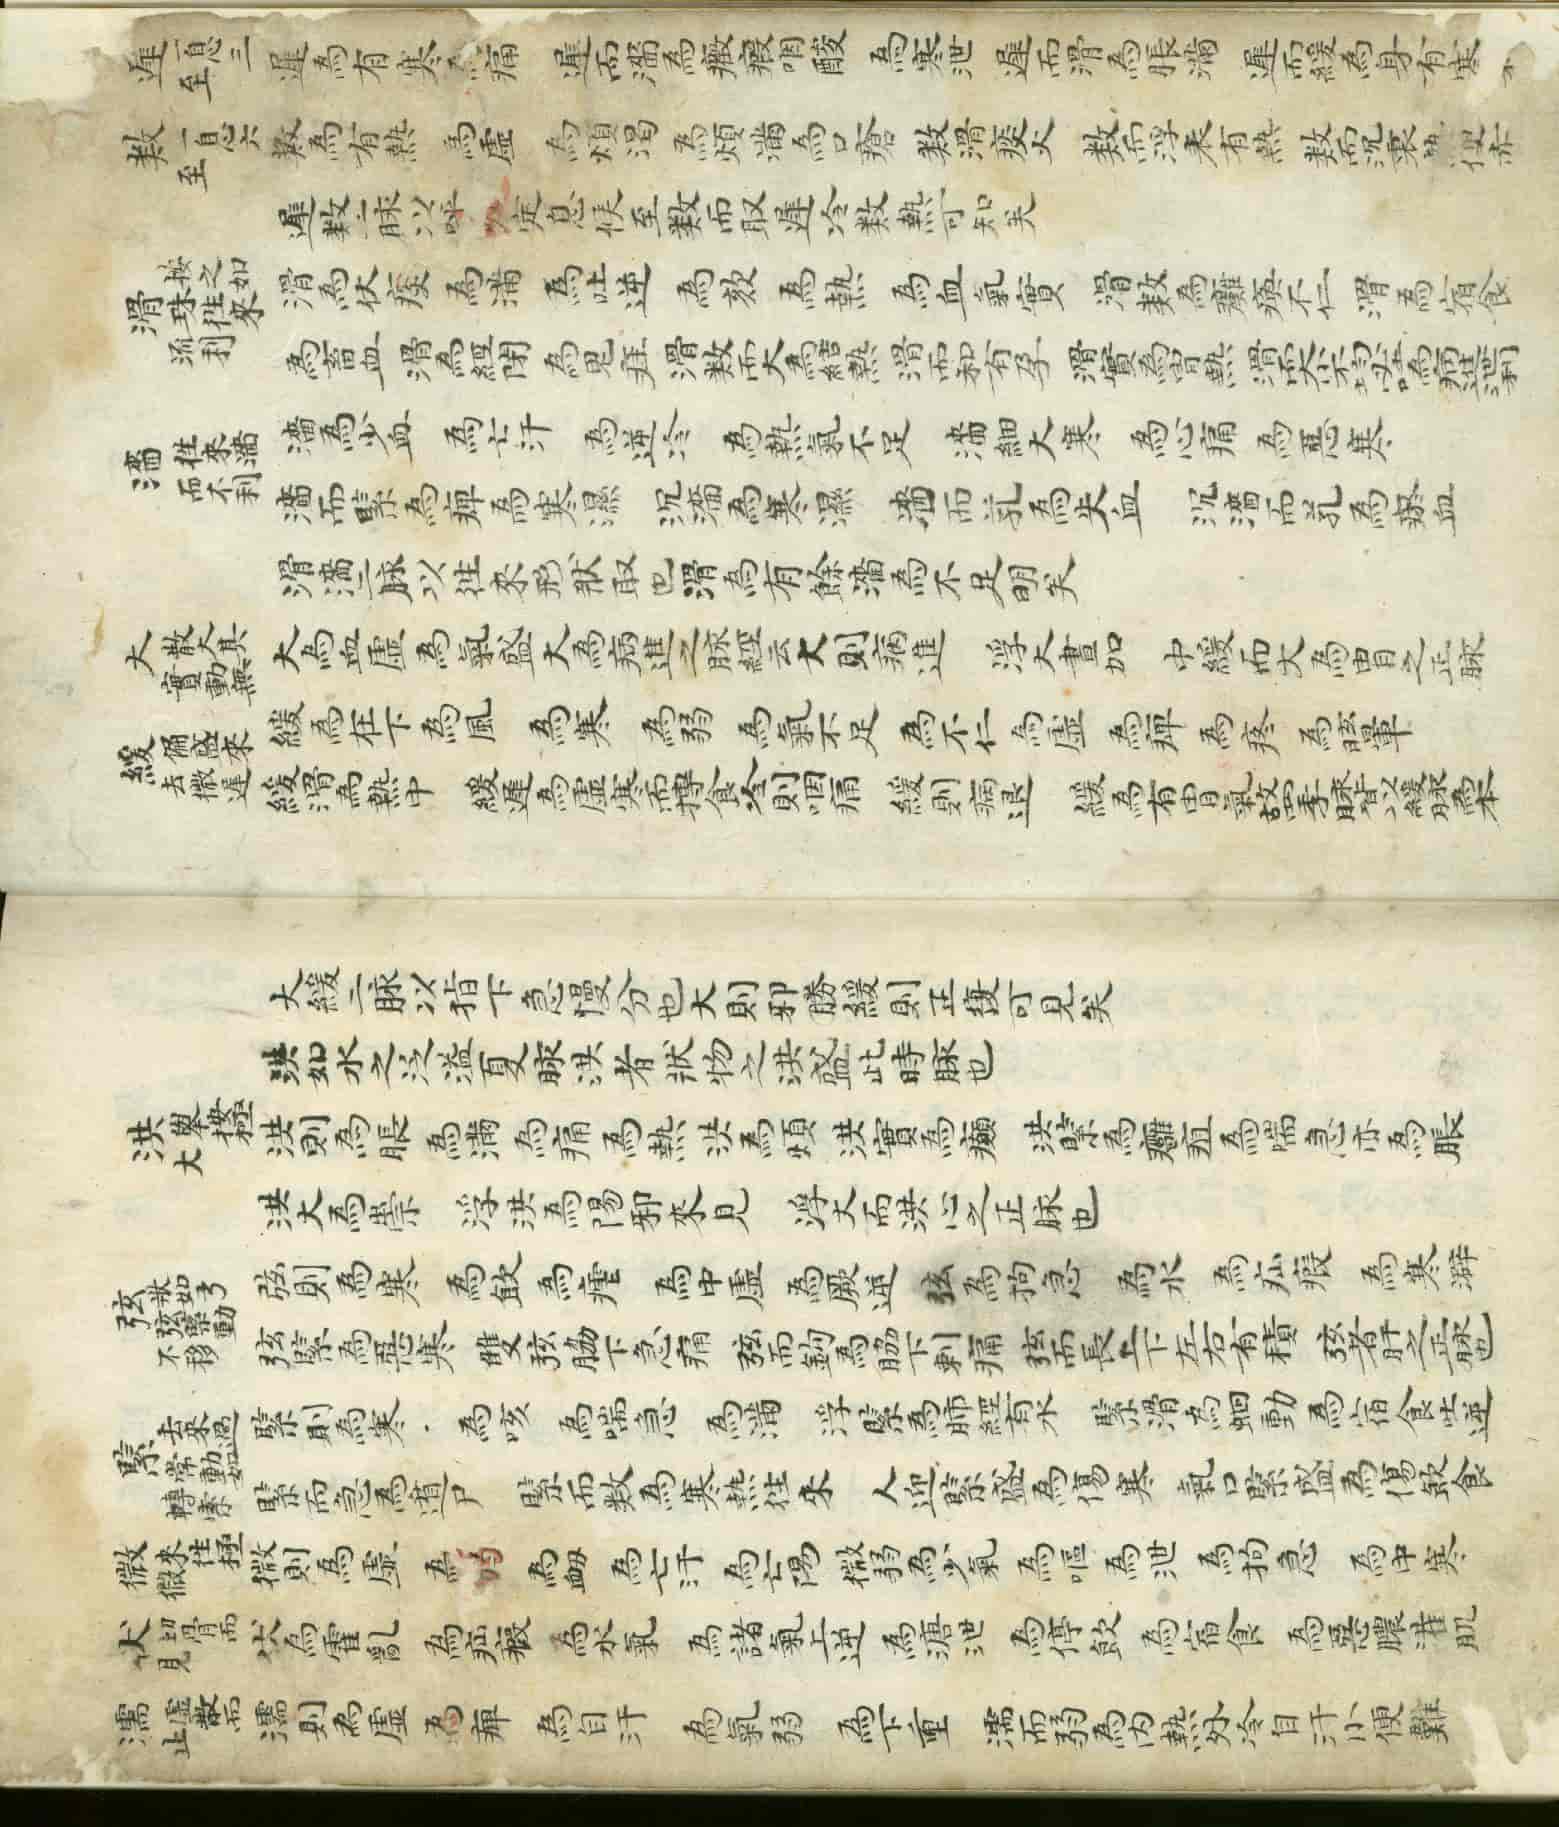 遲 一息三至 遲為有寒為痛 遲而濇為癥瘕咽酸 為寒泄 遲而滑為脹滿 遲而緩為身有寒
數 一息六至 數為有熱 為虛 為煩渴 為煩滿為口瘡 數滑痰火 數而浮表有熱 數而沉裏 便赤
遲數二脉以呼 定息候至數而取遲冷數熱可知矣
滑 按之如珠往來流利 滑為伏痰 為滿 為吐逆 為欬 為熱 為血氣實 滑數為癱瘓不仁 滑為宿食
為畜血 滑為經閉 為鬼疰 滑數而大為結熱 滑而和有孕 滑實為胃熱 滑而大小不均必吐為病進泄利
濇 往來濇而不利 濇為少血 為亡汗 為逆冷 為熱氣不足 濇細大寒 為心痛 為惡寒
濇而緊為痺為寒濕 沉濇為寒濕 濇而芤為失血 沉濇而芤為瘀血
滑濇二脉以往來形狀取也滑為有餘濇為不足明矣
大 散大其實動無 大為血虛為氣盛大為病進之脉經云大則病進 浮大晝加 中緩而大為胃之正脉
緩 俑盛來去微遲 緩為在下為風 為寒 為弱 為氣不足 為不仁為虛 為痺為疼 為眩暈
緩滑為熱中 緩遲為虛寒而搏食冷則咽痛 緩則病退 緩為有胃氣故四季脉皆以緩脉為本
大緩二脉以指下急慢分也大則邪勝緩則正復可見矣
洪如水之泛溢夏脉洪者狀物之洪盛此時脉也
洪 舉按極大 洪則為脹 為滿 為痛為熱洪為煩 洪實為癲 洪緊為癰疽為喘急亦為脹
洪大為祟 浮洪為陽邪來見 浮大而洪心之正脉也
弦 狀如弓弦緊動不移 弦則為寒 為飲為瘧 為中虛 為厥逆 弦為拘急 為水 為疝瘕 為寒澼
弦緊為惡寒 雙弦脇下急痛 弦而鈎為脇下刺痛 弦而長上下左右有積 弦者肝之正脉也
緊 去來過常動如轉索 緊則為寒 為咳 為喘急 為滿 浮緊為肺經有水 緊滑為蛔動 為宿食吐逆
緊而急為遁尸 緊而數為寒熱往來 人迎緊盛為傷寒 氣口緊盛為傷飲食
微 微來往極 微則為虛 為汋 為衂 為亡汗 為亡陽 微弱為少氣 為嘔 為泄 為拘急 為中寒
伏 切骨而見 伏為霍亂 為疝瘕 為水氣 為諸氣上逆 為溏泄 為停飲 為宿食 為惡膿灌肌
濡 虛散而止 濡則為虛 為痺 為自汗 為氣弱 為下重 濡而弱為內熱外冷自汗小便難